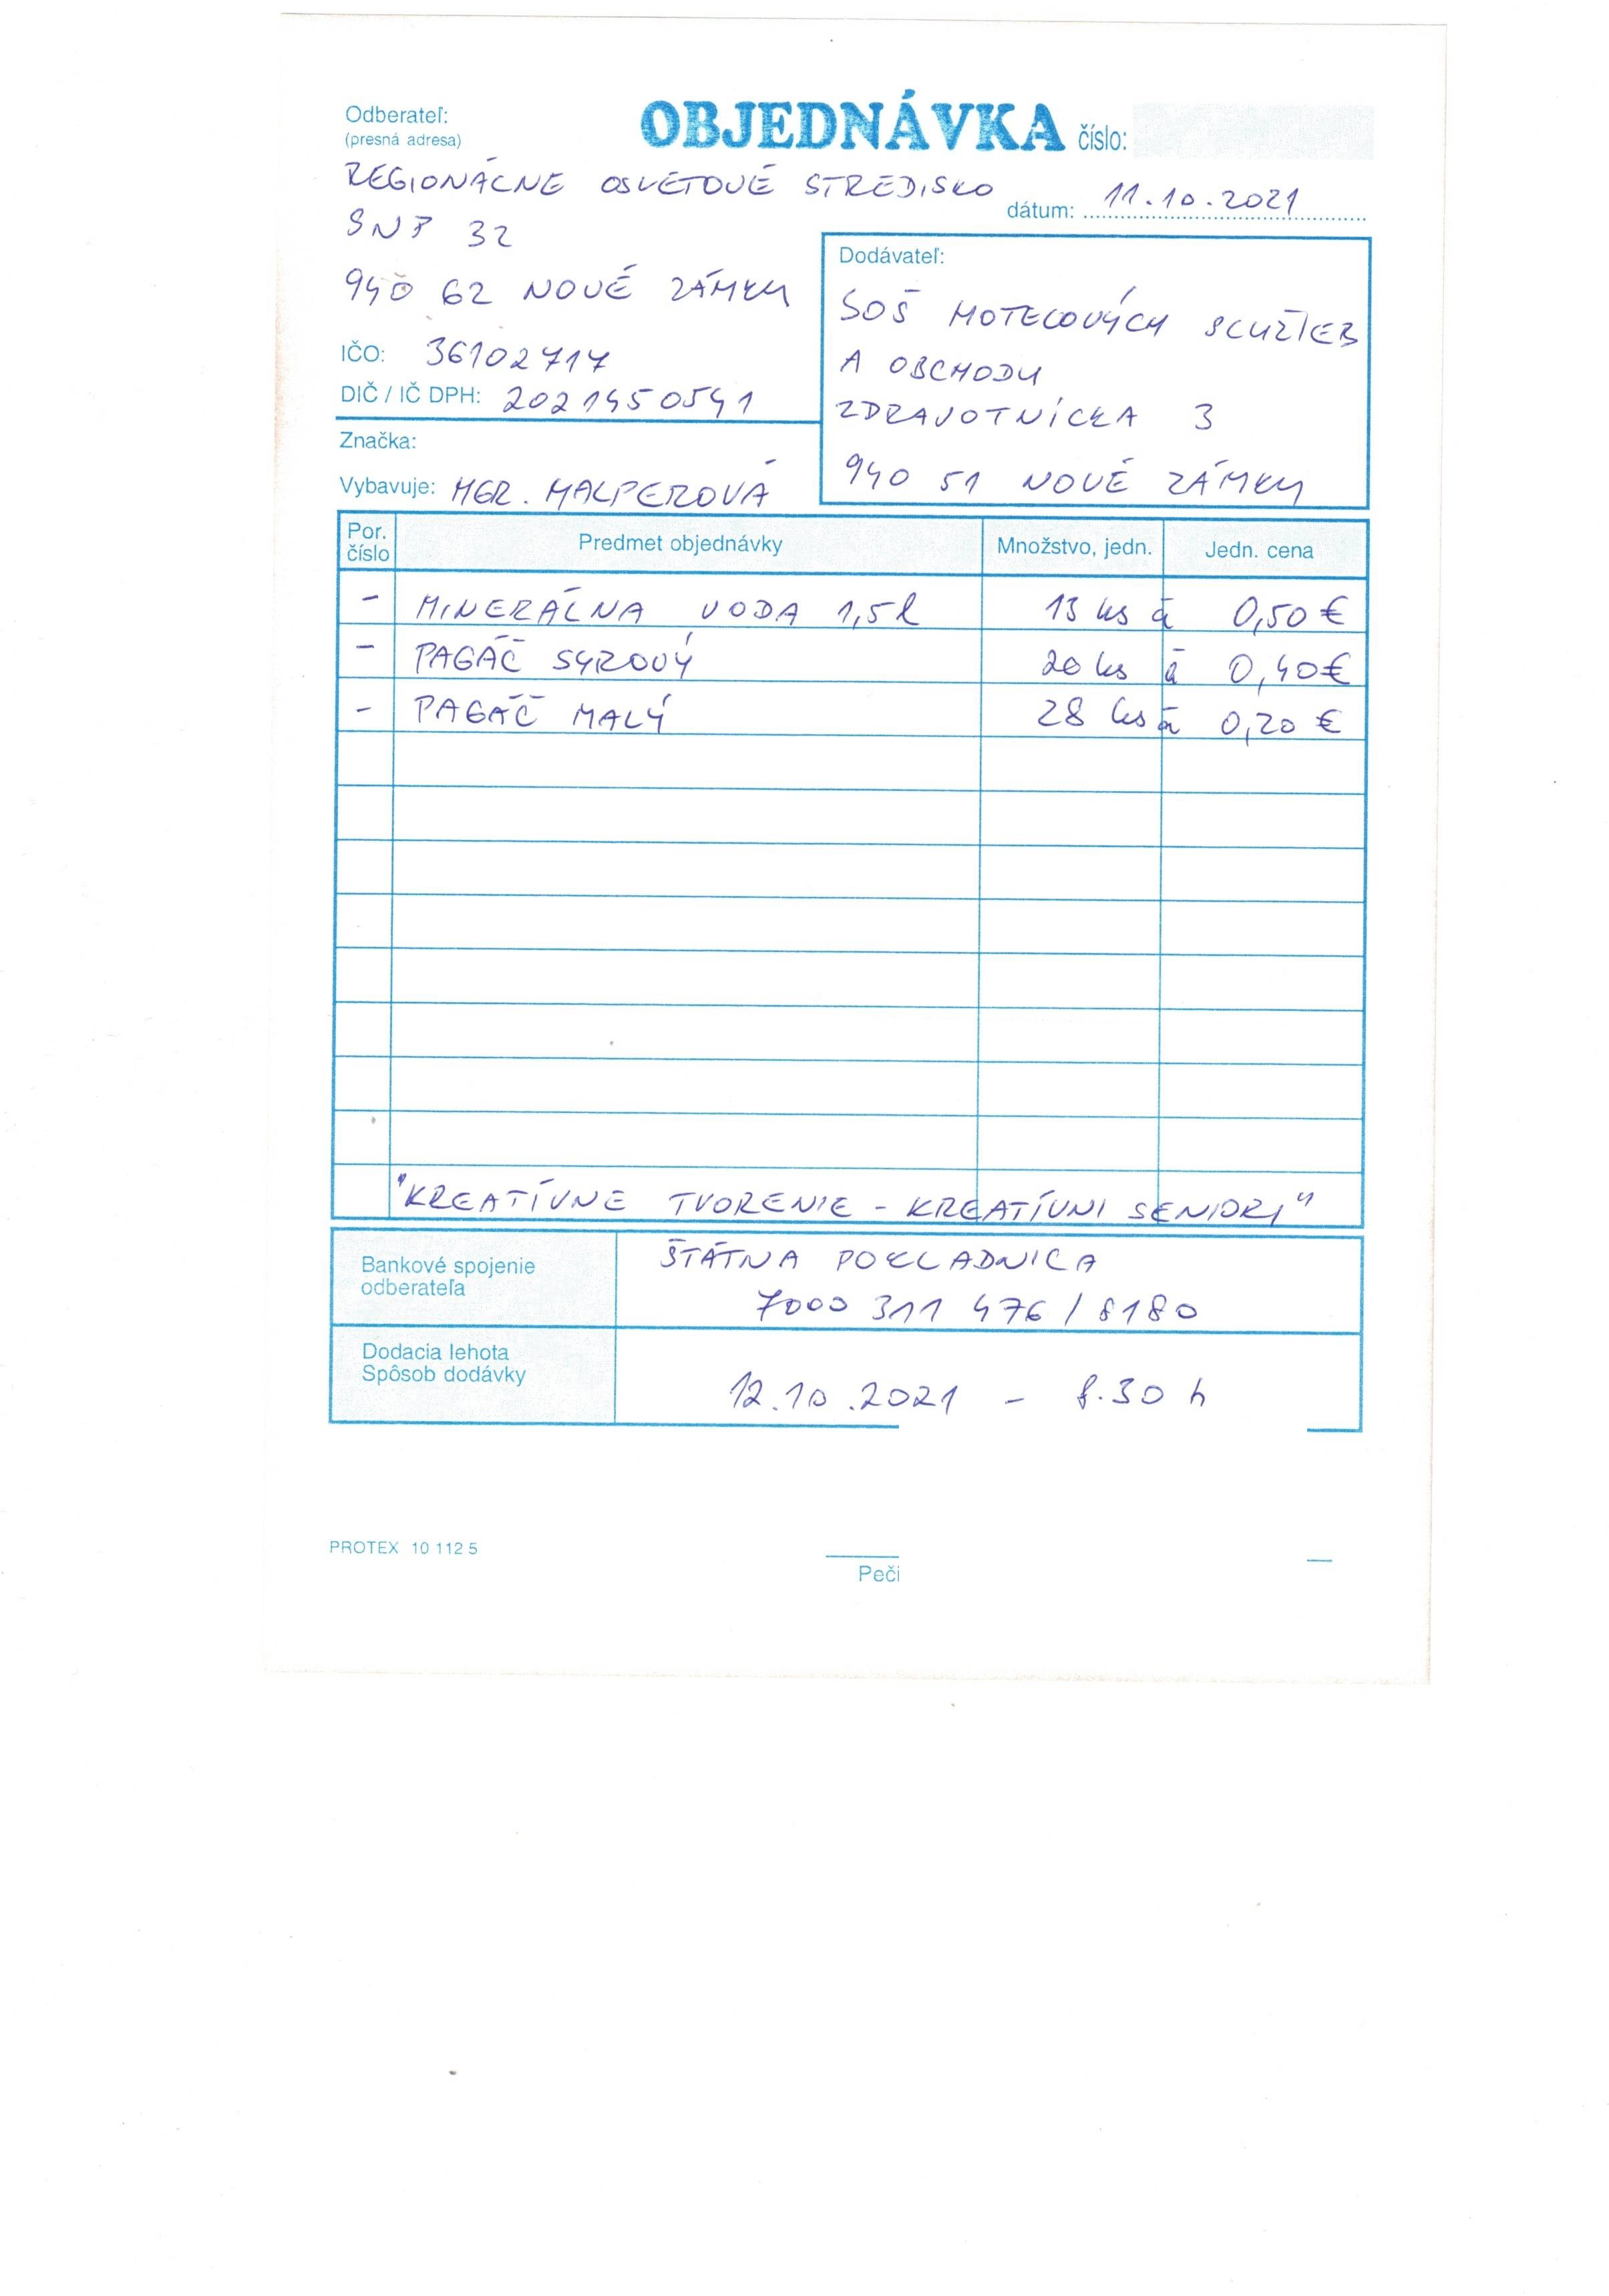 Odberateľ:
(presná adresa)
OBJEDNÁVKA číslo:
REGIONÁLNE OSVETOVÉ STREDISKO
dátum: 11.10.2021
SNP 32
940 62 NOVÉ ZÁMKY
IČO: 36102717
DIČ / IČ DPH: 2021450541
Značka:
Vybavuje: MGR. MALPEROVÁ
Dodávateľ:
SOŠ HOTELOVÝCH SLUŽIEB
A OBCHODU
ZDRAVOTNÍCKA 3
940 51 NOVÉ ZÁMKY
Por. číslo Predmet objednávky Množstvo, jedn. Jedn. cena
- MINERÁLNA VODA 1,5l 13 ks á 0,50 €
- PAGÁČ SYROVÝ 20 ks á 0,40 €
- PAGÁČ MALÝ 28 ks á 0,20 €
"KREATÍVNE TVORENIE - KREATÍVNI SENIORI"
Bankové spojenie
odberateľa
ŠTÁTNA POKLADNICA
7000 311 476 / 8180
Dodacia lehota
Spôsob dodávky
12.10.2021 - 8.30 h
PROTEX 10 112 5
Peči